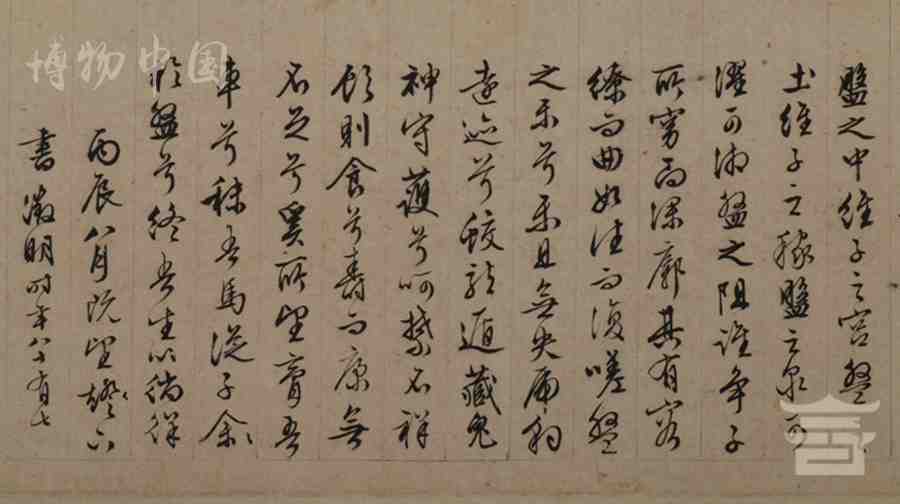 博物中国
盤之中維子之宮盤之
土維子之稼盤之泉可
濯可湘盤之阻誰爭子
所窈而深廓其有容
繚而曲如往而復嗟盤
之樂兮樂且無央虎豹
遠迹兮蛟龍遁藏鬼
神守護兮呵禁不祥
飲則食兮壽而康無
不足兮奚所望膏吾
車兮秣吾馬從子余
於盤兮終吾生以徜徉
丙辰八月既望鐙下
書徵明時年八十有七